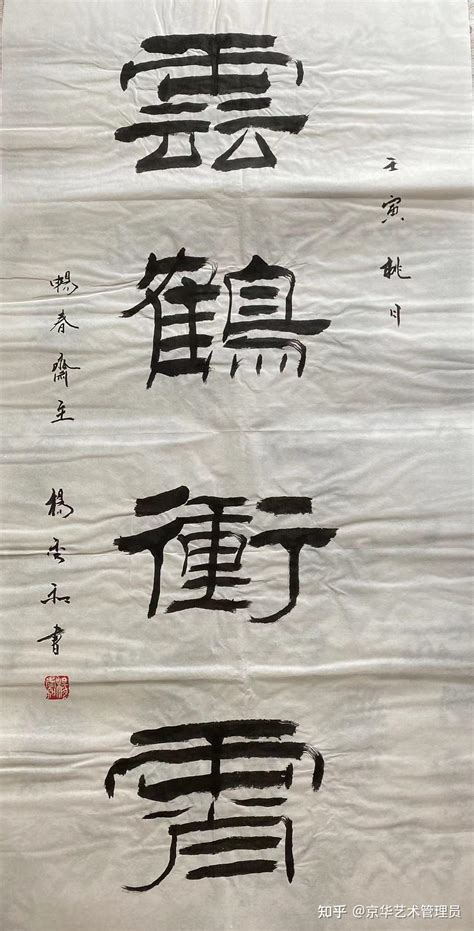 壬寅桃月
雲鶴衝霄
暢春齋主 楊和書
知乎 @京华艺术管理员